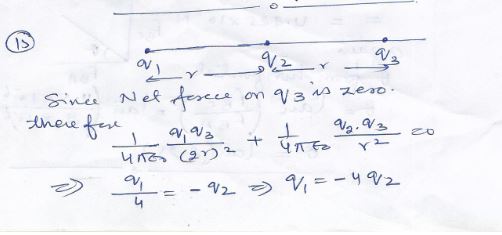 (15)
q₁ q₂ q₃
r r
Since Net force on q₃ is zero.
therefore
1/4πε₀ q₁q₃/(2r)² + 1/4πε₀ q₂.q₃/r² = 0
⇒ q₁/4 = - q₂ ⇒ q₁ = - 4 q₂